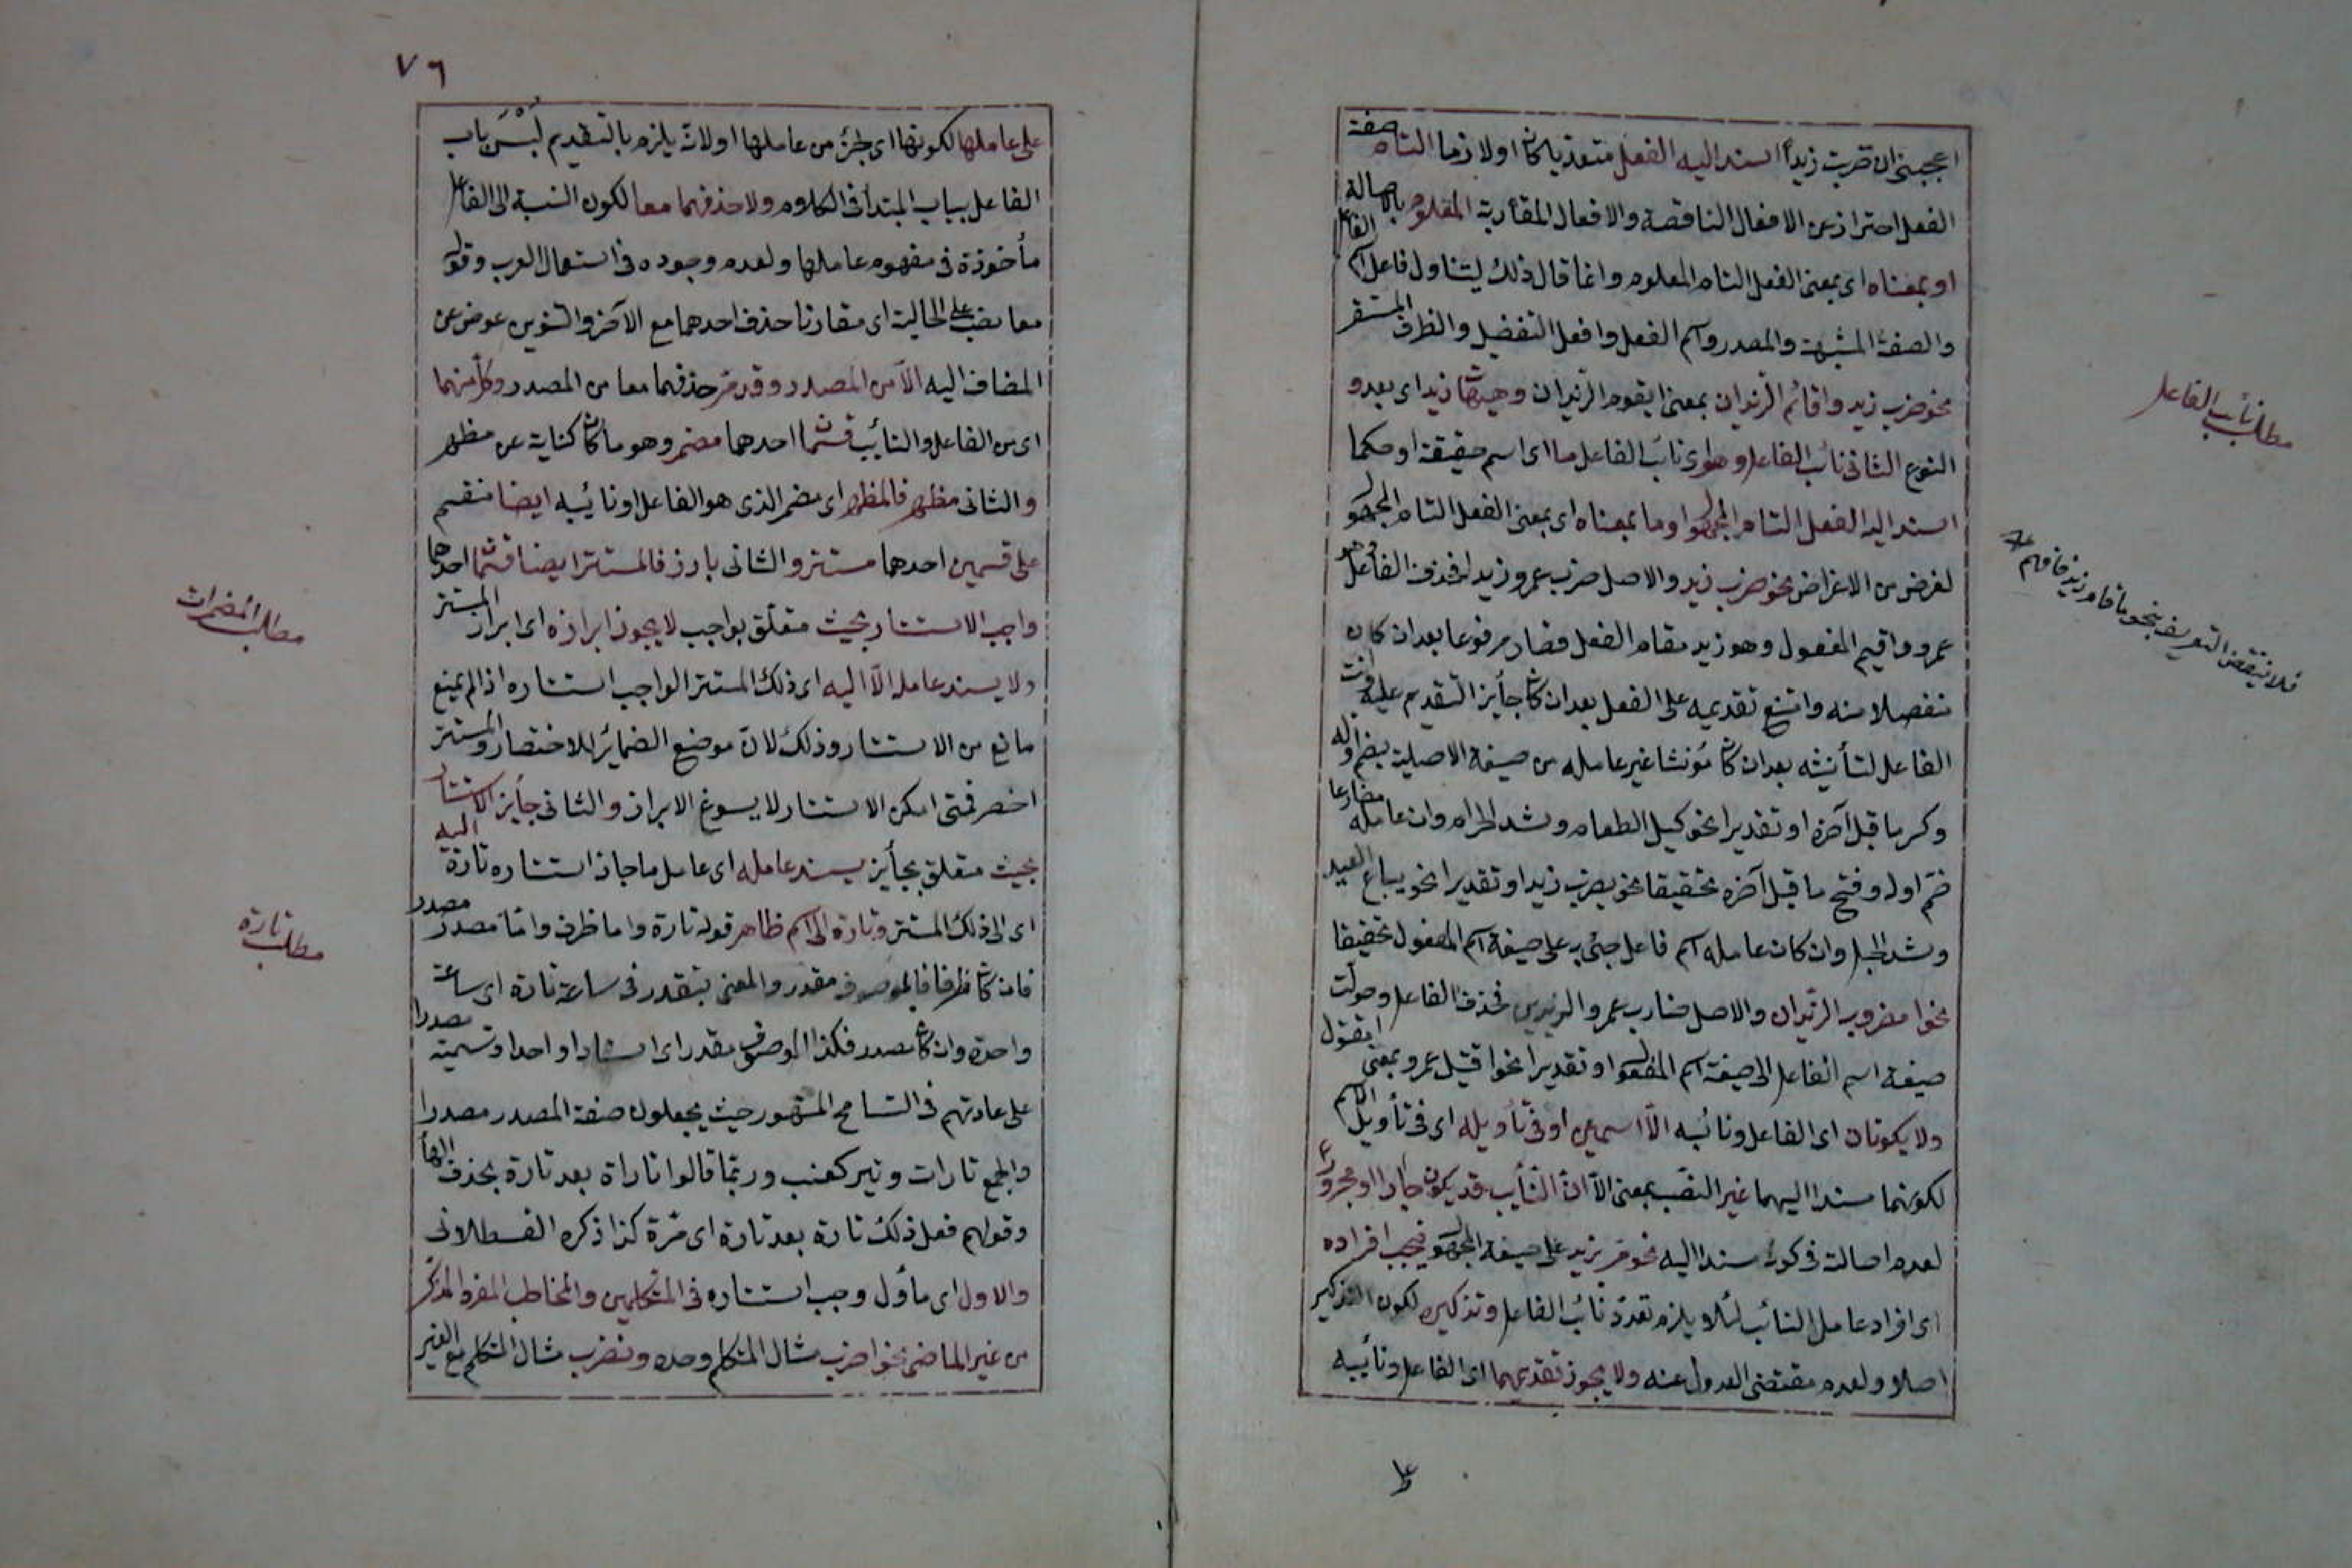 اعجبنى ان ضربت زيدا اسند اليه الفعل متعديا كان او لازما التام صفة
الفعل احتراز عن الافعال الناقصة والافعال المقاربة المعلوم بالاصالة
او بمعناه اى بمعنى الفعل التام المعلوم وانما قال ذلك ليتناول فاعل اسم الفاعل
والصفة المشبهة والمصدر واسم الفعل وافعل التفضيل والظرف المستقر
نحو ضرب زيد واقائم الزيدان بمعنى ايقوم الزيدان وهيهات زيد اى بعد و
النوع الثانى نائب الفاعل وهو اى نائب الفاعل ما اى اسم حقيقة او حكما
اسند اليه الفعل التام المجهول او ما بمعناه اى بمعنى الفعل التام المجهول
لغرض من الاغراض نحو ضرب زيد والاصل ضرب عمرو زيد فحذف الفاعل وهو
عمرو واقيم المفعول وهو زيد مقام الفعل فصار مرفوعا بعد ان كان
منفصلا منه وامتنع تقديمه على الفعل بعد ان كان جايز التقديم عليه
الفاعل لتأنيثه بعد ان كان مؤنثا غير عامله من صيغة الاصلية بضم اوله
وكسر ما قبل آخره او تقديرا نحو كيل الطعام وشد الحرام وان عامله مضارعا
ضم اوله وفتح ما قبل آخره تحقيقا نحو يضرب زيد او تقديرا نحو يباع العبيد
وشد الحبل وان كان عامله اسم فاعل جئ به على صيغة اسم المفعول تحقيقا
نحو امضروب الزيدان والاصل ضارب عمرو الزيدين فحذف الفاعل وحولت
صيغة اسم الفاعل الى صيغة اسم المفعول او تقديرا نحو اقتيل عمرو بمعنى امقتول
ولا يكونان اى الفاعل ونائبه الا اسمين او فى تأويله اى فى تأويل الاسم
لكونهما مسندا اليهما غير النصب بمعنى الا ان النايب قد يكون جارا او مجرورا
لعدم اصالته فى كونه مسندا اليه نحو مر بزيد على صيغة المجهول فيجب افراده
اى افراد عامل النائب لئلا يلزم تعدد نائب الفاعل وتذكيره لكون التذكير
اصلا ولعدم مقتضى العدول عنه ولا يجوز تقديمهما اى الفاعل ونائبه
على
مطلب نائب الفاعل
فلا ينتقض التعريف بنحو ما قام زيد فافهم
٧٦
على عاملها لكونها اى لجزء من عاملها او لانه يلزم بالتقديم لبس باب
الفاعل بباب المبتدأ فى الكلام ولا حذفهما معا لكون النسبة الى الفاعل
مأخوذة فى مفهوم عاملها ولعدم وجوده فى استعمال العرب وقوله
معا نصب على الحالية اى مقارنا حذف احدهما مع الآخر والتنوين عوض عن
المضاف اليه الا من المصدر وقد مر حذفهما معا من المصدر وكل منهما
اى من الفاعل والنائب قسمان احدهما مضمر وهو ما كان كناية عن مظهر
والثانى مظهر فالمظهر اى مضمر الذى هو الفاعل او نائبه ايضا منقسم
على قسمين احدهما مستتر والثانى بارز فالمستتر ايضا قسمان احدهما
واجب الاستتار بحيث متعلق بواجب لا يجوز ابرازه اى ابراز المستتر
ولا يسند عامله الا اليه اى ذلك المستتر الواجب استتاره اذا لم يمنع
مانع من الاستتار وذلك لان موضع الضمائر للاختصار والمستتر
اخصر فمتى امكن الاستتار لا يسوغ الابراز والثانى جايز الاستتار
بحيث متعلق بجايز يسند عامله اى عامل ما جاز استتاره تارة اليه
اى الى ذلك المستتر وتارة الى اسم ظاهر قوله تارة واما ظرف واما مصدر
فان كان ظرفا فالموصوف مقدر والمعنى بتقدر فى ساعة تارة اى ساعة
واحدة وان كان مصدر فكذا الموصوف مقدر اى اسنادا واحدا وتسميته مصدرا
على عادتهم فى التسامح المشهور حيث يجعلون صفة المصدر مصدرا
والجمع تارات وتير كعنب وربما قالوا تاراة بعد تارة بحذف الهاء
وقولهم فعل ذلك تارة بعد تارة اى مرة كذا ذكره القسطلانى
والاول اى ما اول وجب استتاره فى المتكلمين والمخاطب المفرد المذكر
من غير الماضى نحو اضرب مثال المتكلم وحده ونضرب مثال المتكلم مع الغير
مطلب المضمرات
مطلب تارة